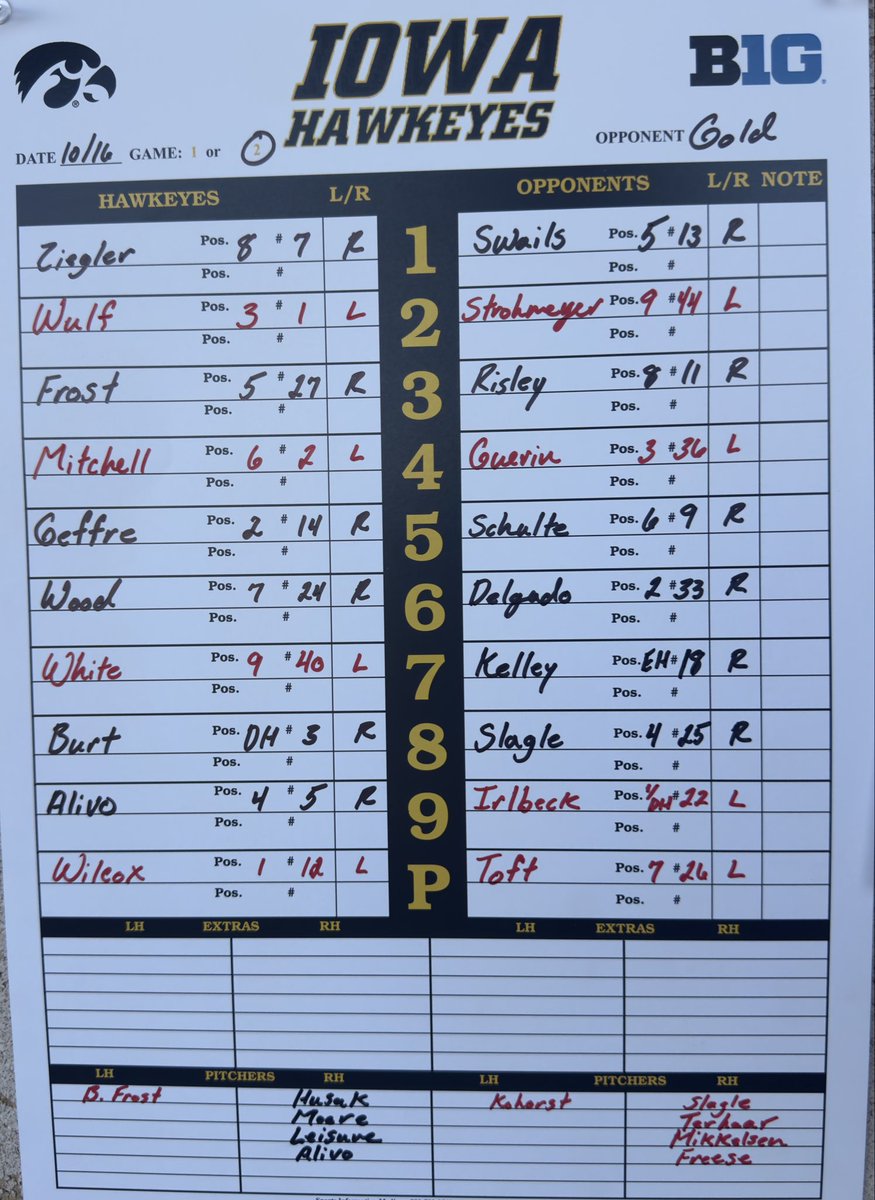 IOWA
HAWKEYES
B1G
DATE 10/16 GAME: 1 or 2 OPPONENT Gold
HAWKEYES L/R OPPONENTS L/R NOTE
Ziegler Pos. 8 # 7 R 1 Swails Pos. 5 # 13 R
Pos. # Pos. #
Wulf Pos. 3 # 1 L 2 Strohmeyer Pos. 9 # 44 L
Pos. # Pos. #
Frost Pos. 5 # 27 R 3 Risley Pos. 8 # 11 R
Pos. # Pos. #
Mitchell Pos. 6 # 2 L 4 Guerin Pos. 3 # 36 L
Pos. # Pos. #
Geffre Pos. 2 # 14 R 5 Schulte Pos. 6 # 9 R
Pos. # Pos. #
Wood Pos. 7 # 24 R 6 Delgado Pos. 2 # 33 R
Pos. # Pos. #
White Pos. 9 # 40 L 7 Kelley Pos. EH # 18 R
Pos. # Pos. #
Burt Pos. DH # 3 R 8 Slagle Pos. 4 # 25 R
Pos. # Pos. #
Alivo Pos. 4 # 5 R 9 Irlbeck Pos. 1/DH # 22 L
Pos. # Pos. #
Wilcox Pos. 1 # 12 L P Toft Pos. 7 # 26 L
Pos. # Pos. #
LH EXTRAS RH LH EXTRAS RH
LH PITCHERS RH LH PITCHERS RH
B. Frost Husak Kohorst Slagle
Moore Terhaar
Leisure Mikkelsen
Alivo Freese